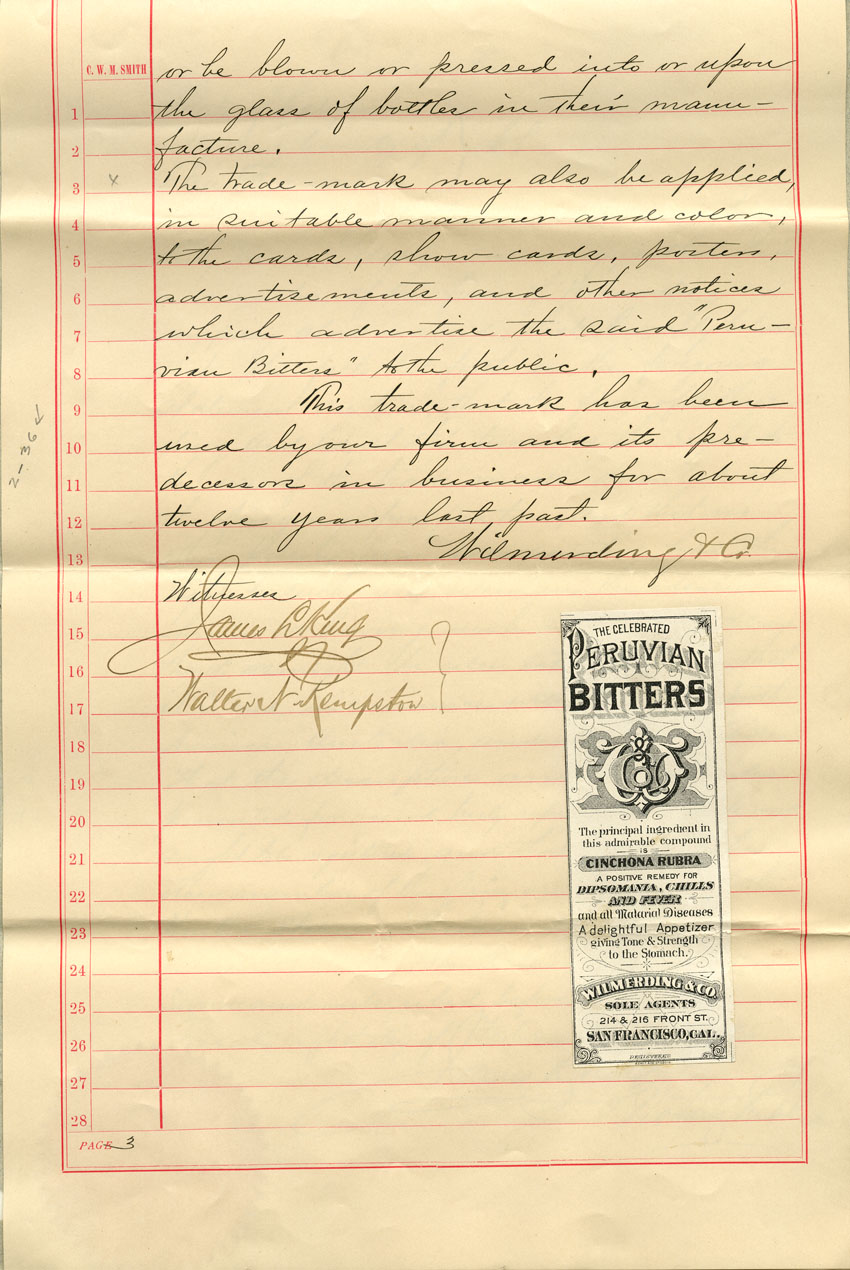 C. W. M. SMITH
or be blown or pressed into or upon
1 the glass of bottles in their manu-
2 facture.
3 x The trade-mark may also be applied,
4 in suitable manner and color,
5 to the cards, show cards, posters,
6 advertisements, and other notices
7 which advertise the said "Peru-
8 vian Bitters" to the public.
9 This trade-mark has been
10 used by our firm and its pre-
11 decessors in business for about
12 twelve years last past.
13 Wilmerding & Co.
14 Witnesses
15 James L. King
16
17 Walter N. Rempston
18
19
20
21
22
23
24
25
26
27
28
PAGE 3
2-36
THE CELEBRATED
PERUVIAN
BITTERS
The principal ingredient in
this admirable compound
IS
CINCHONA RUBRA
A POSITIVE REMEDY FOR
DIPSOMANIA, CHILLS
AND FEVER
and all Malarial Diseases
A delightful Appetizer
giving Tone & Strength
to the Stomach.
WILMERDING & CO.
SOLE AGENTS
214 & 216 FRONT ST.
SAN FRANCISCO, CAL.
REGISTERED